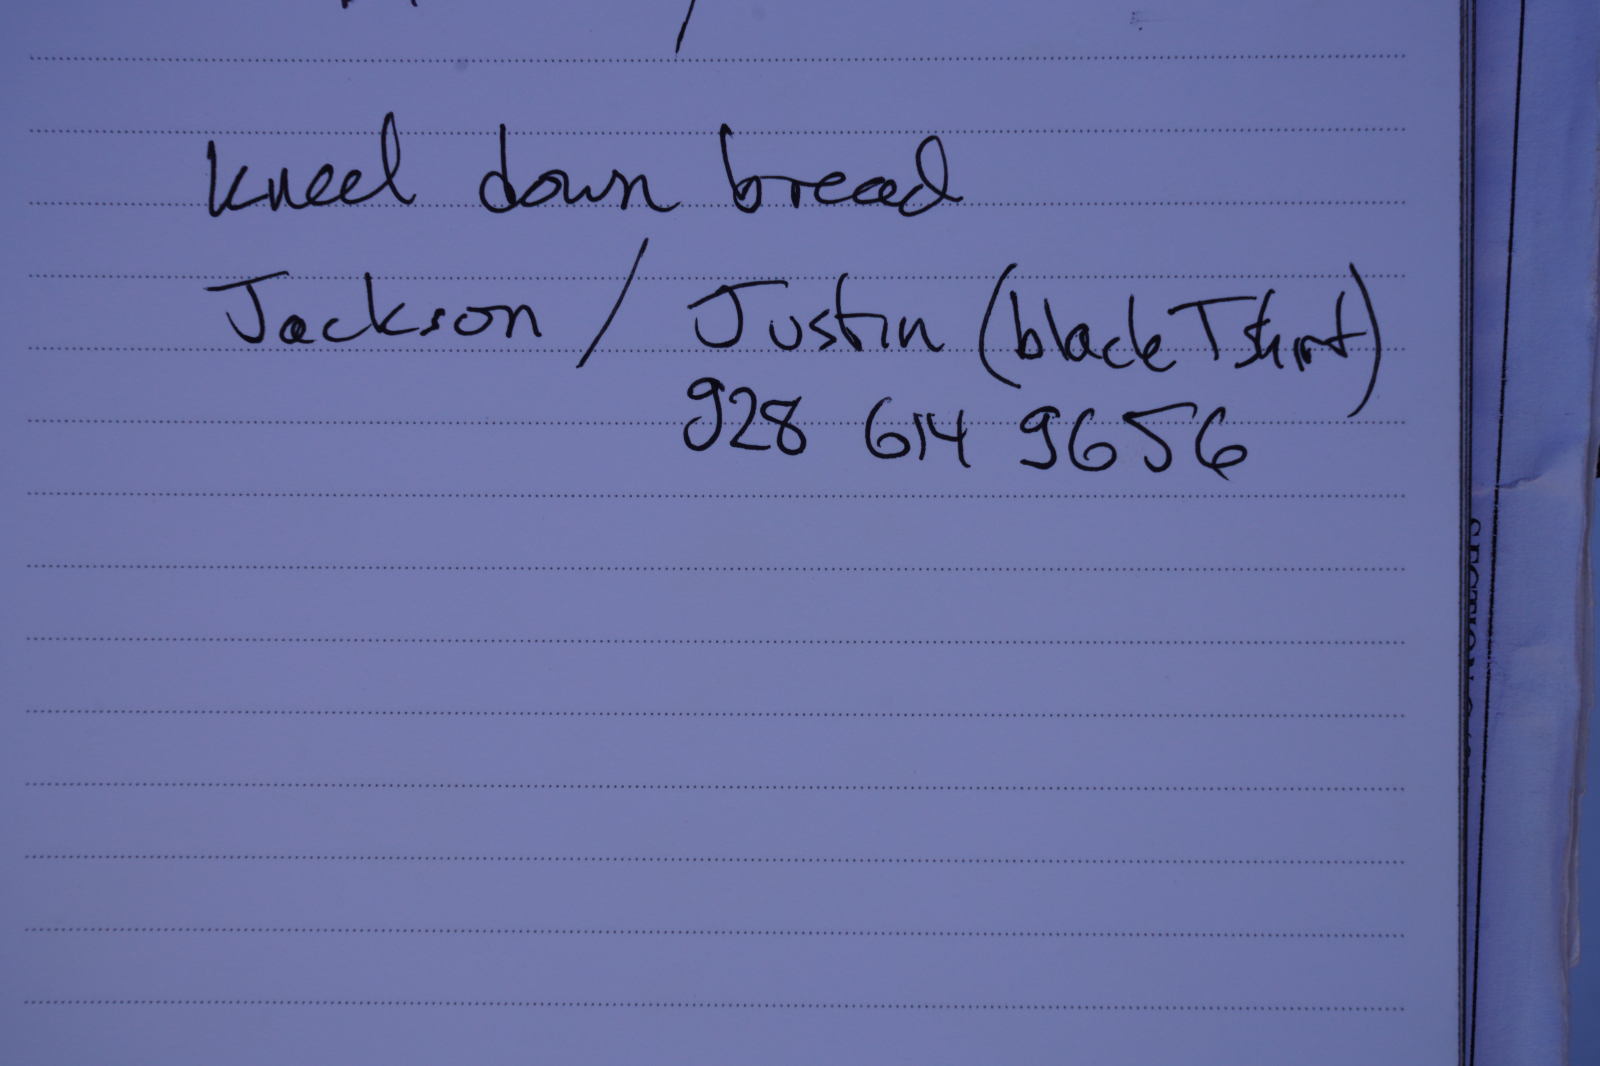 kneel down bread
Jackson / Justin (black T shirt)
928 614 9656
SECTION